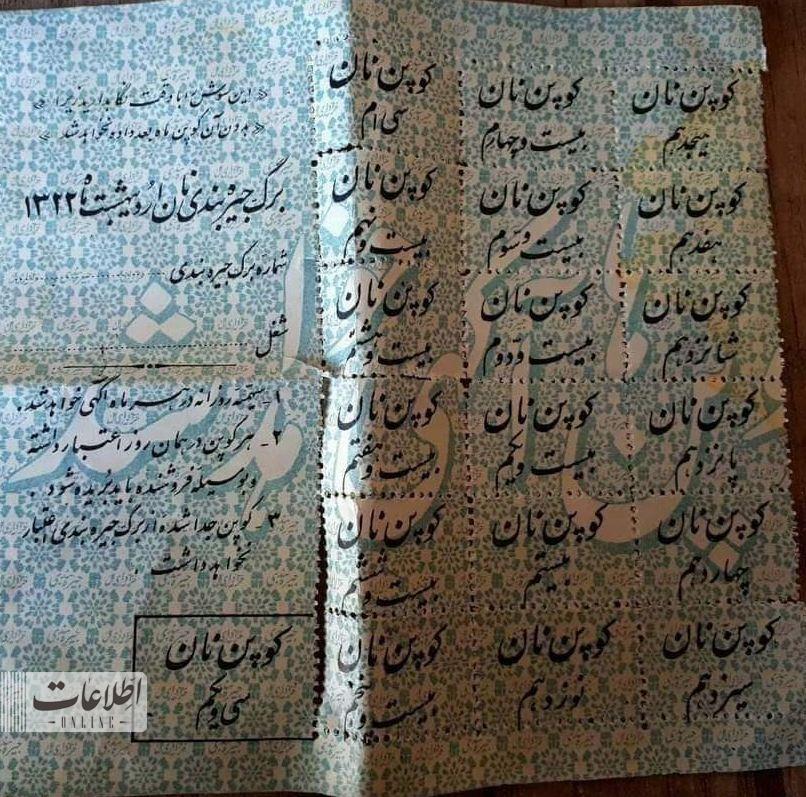 کوپن نان
هیجدهم
کوپن نان
هفدهم
کوپن نان
شانزدهم
کوپن نان
پانزدهم
کوپن نان
چهاردهم
کوپن نان
سیزدهم
کوپن نان
بیست و چهارم
کوپن نان
بیست و سوم
کوپن نان
بیست و دوم
کوپن نان
بیست و یکم
کوپن نان
بیستم
کوپن نان
نوزدهم
کوپن نان
سی ام
کوپن نان
بیست و نهم
کوپن نان
بیست و هشتم
کوپن نان
بیست و هفتم
کوپن نان
بیست و ششم
کوپن نان
بیست و پنجم
«این سوش را با دقت نگاهدارید زیرا»
«بدون آن کوپن ماه بعد داده نخواهد شد»
برگ جیره بندی نان اردیبهشت ماه ۱۳۲۲
شماره برگ جیره بندی
شغل
۱- سهمیه روزانه در هر ماه آگهی خواهد شد.
۲- هر کوپن در همان روز اعتبار داشته
و بوسیله فروشنده باید بریده شود.
۳- کوپن جدا شده از برگ جیره بندی اعتبار
نخواهد داشت.
کوپن نان
سی و یکم
اطلاعات
ONLINE